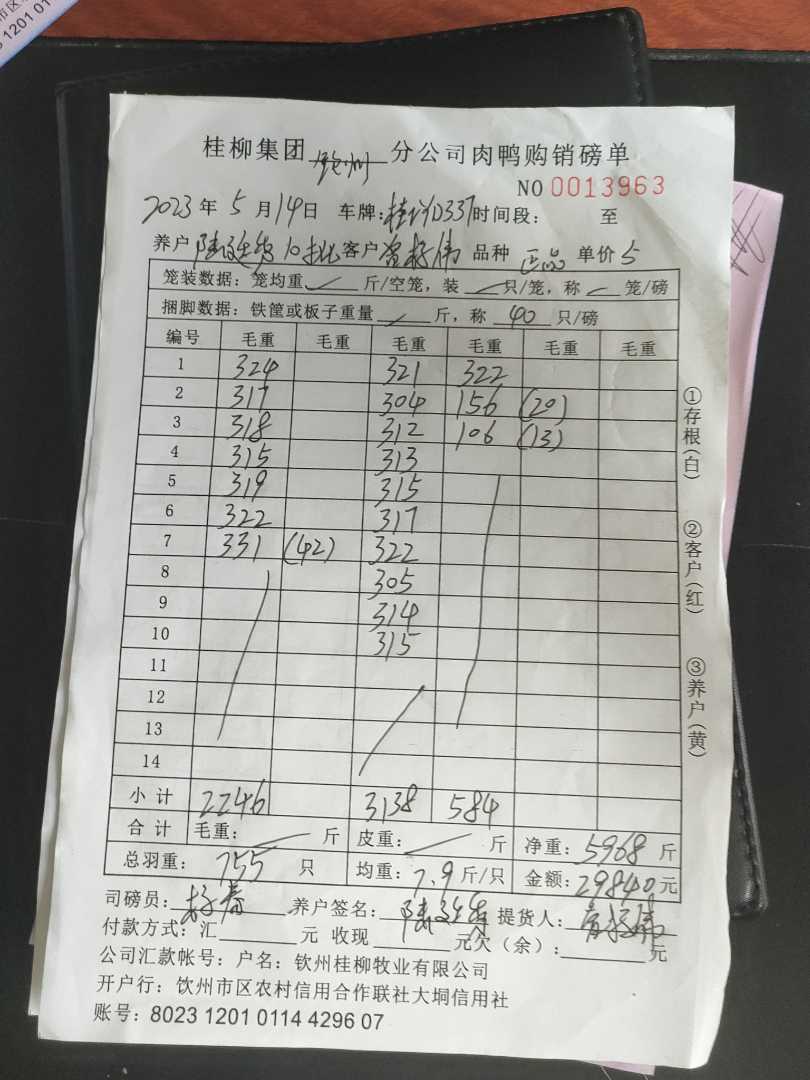 市区
3 1201 01
桂柳集团 钦州 分公司肉鸭购销磅单
NO 0013963
2023 年 5 月 14 日 车牌: D337 时间段: 至
养户 陆 10批 客户 伟 品种 正品 单价 5
笼装数据: 笼均重 斤/空笼, 装 只/笼, 称 笼/磅
捆脚数据: 铁筐或板子重量 斤, 称 40 只/磅
编号 毛重 毛重 毛重 毛重 毛重 毛重
1 324 321 322
2 317 304 156 (20)
3 318 312 106 (13)
4 315 313
5 319 315
6 322 317
7 331 (42) 322
8 305
9 314
10 315
11
12
13
14
小计 2246 3138 584
合计 毛重: 斤 皮重: 斤 净重: 5968 斤
总羽重: 755 只 均重: 7.9 斤/只 金额: 29840 元
司磅员: 养户签名: 陆 提货人: 伟
付款方式: 汇 元 收现 元欠(余): 元
公司汇款帐号: 户名: 钦州桂柳牧业有限公司
开户行: 钦州市区农村信用合作联社大垌信用社
账号: 8023 1201 0114 4296 07
①存根(白)
②客户(红)
③养户(黄)